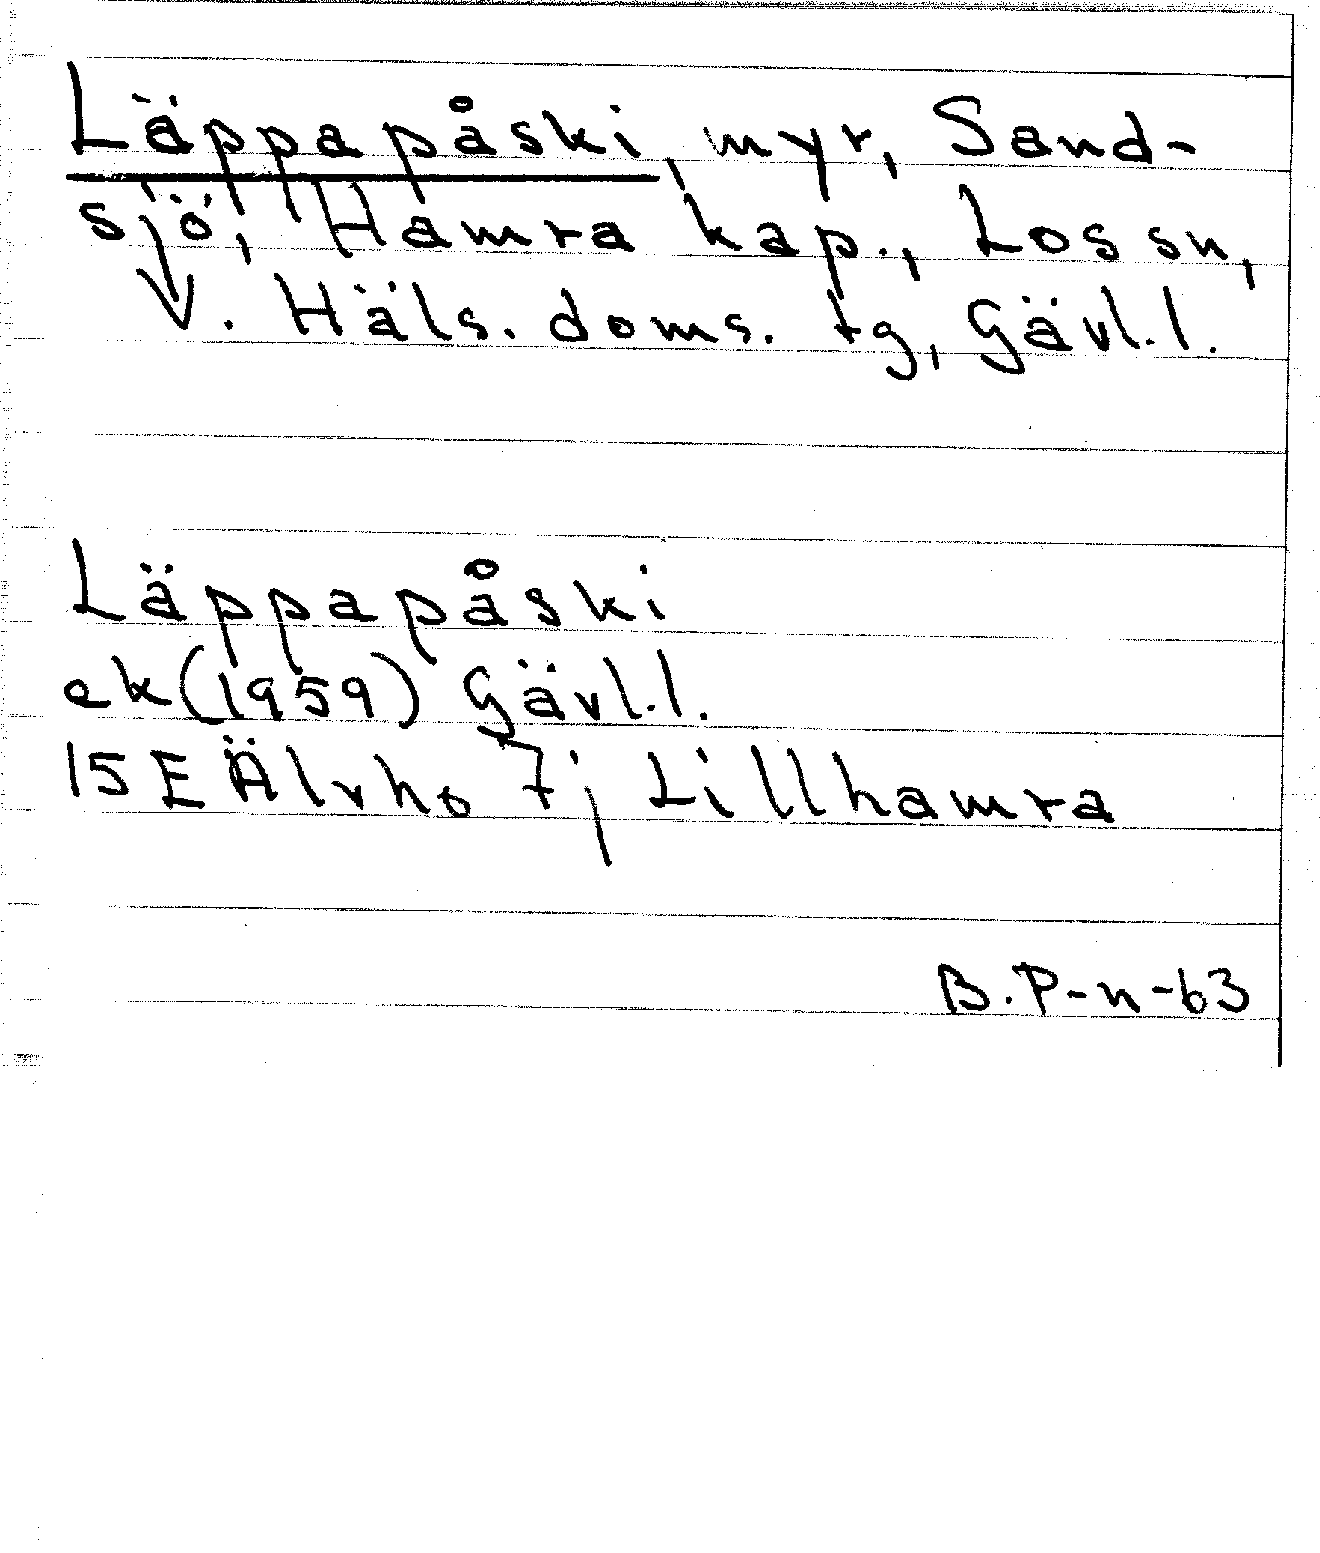 Läppapåski, myr, Sand-
sjö, Hamra kap., Los sn,
V. Häls. doms. tg, Gävl. l.
Läppapåski
ek (1959) Gävl. l.
15 E Älvho 7j Lillhamra
B. P-n -63